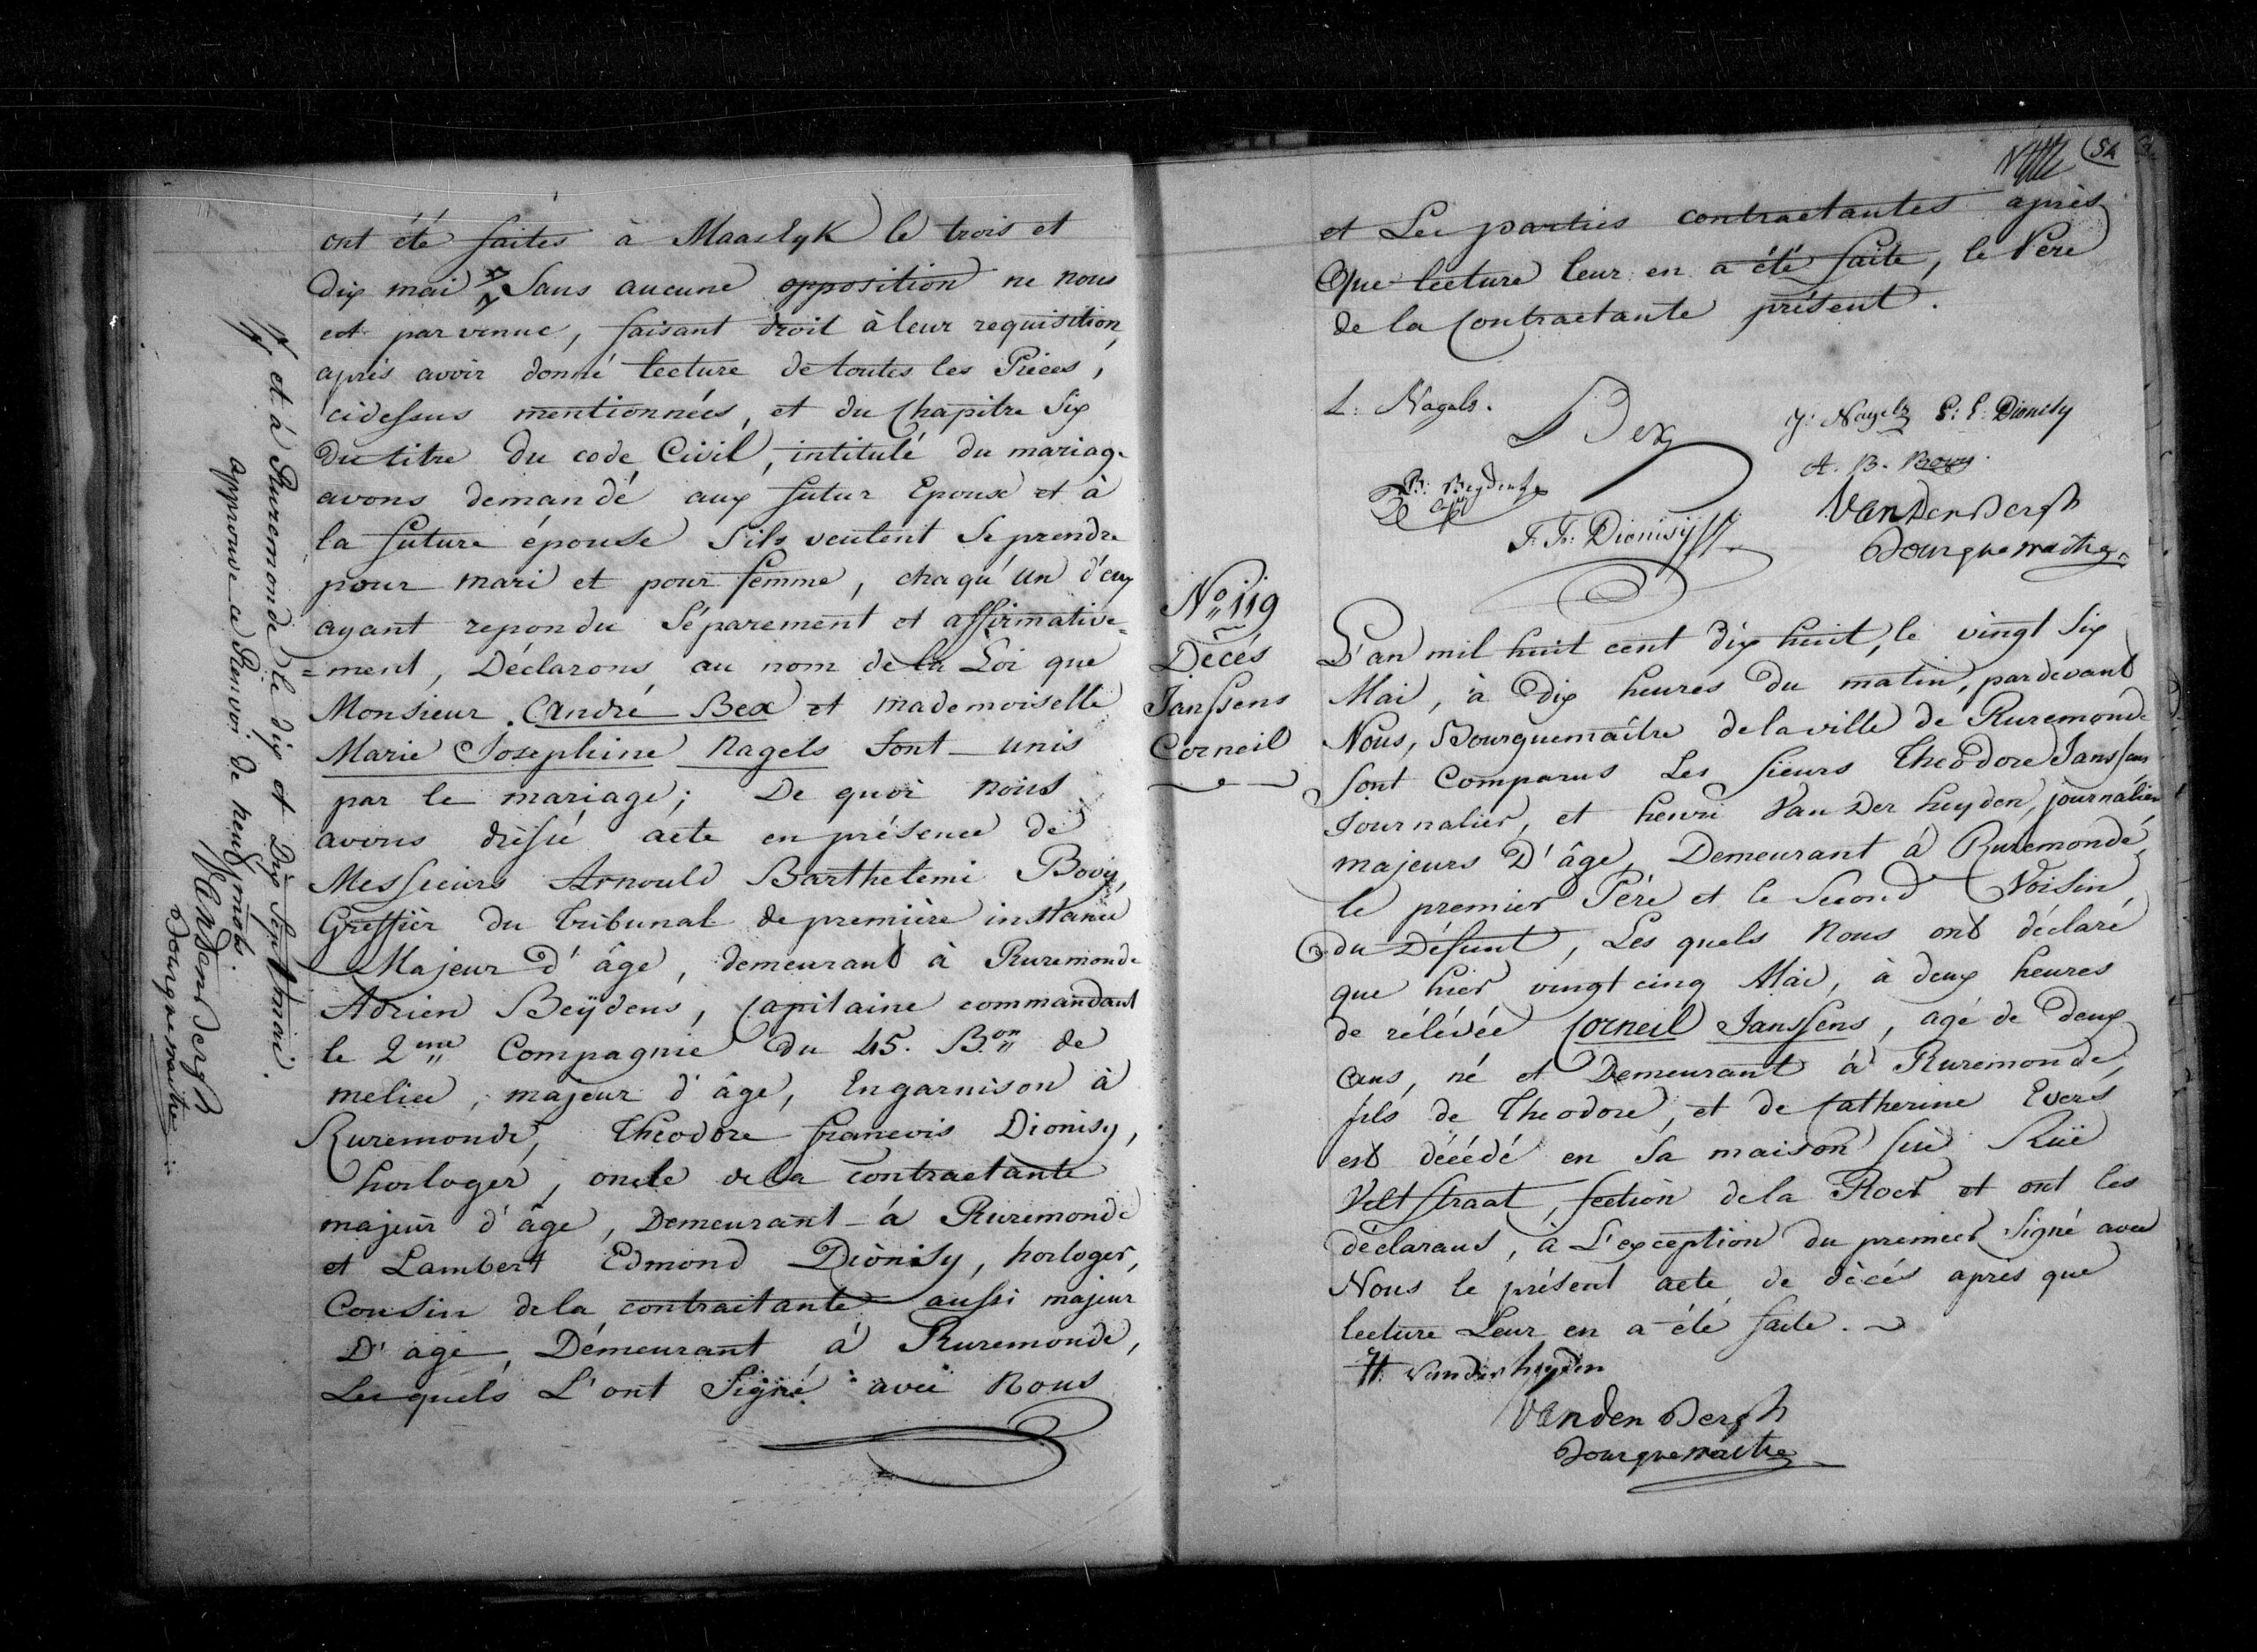 ont été faites à Maaslyk le trois et
dix mai Sans aucune opposition ne nous
est parvenue, faisant droit à leur requisition,
après avoir donné lecture de toutes les Piéces,
cidessus mentionnées, et du Chapitre Six
du titre du code Civil, intitulé du mariage
avons demandé aux futur Epoux et à
la future épouse s'ils veulent Se prendre
pour mari et pour femme, chaqu'un d'eux
ayant repondu Séparement et affirmative=
=ment, Déclarons au nom de la Loi que
Monsieur André Bex et mademoiselle
Marie Josephine Nagels sont unis
par le mariage; De quoi nous
avons dressé acte en présence de
Messieurs Arnould Barthelemi Bovy,
Greffier du Tribunal de première instance
Majeur d'âge, demeurant à Ruremonde
Adrien Beÿdens, Capitaine commandant
le 2me Compagnie du 45. B.on de
melice, majeur d'âge, En garnison à
Ruremonde, Théodore francois Dionisy,
horloger, oncle de la contractante
majeur d'âge, Demeurant à Ruremonde
et Lambert Edmond Dionisy, horloger,
Cousin de la contractante aussi majeur
D'âge, Démeurant à Ruremonde,
Les quels L'ont Signé avec Nous
et à Ruremonde le dix et Dix Sept mai.
approuvé ce Renvoi de neuf mots.
Van Den Bergh
Bourguemaitre
54
et Les parties contractantes après
Que lecture leur en a été faite, le Pere
de la Contractante présent.
L: Nagels.
Bex
J: Nagels L: E: Dionisy
A. B. Bovy.
B: Beydens
Van Den Bergh
T. F: Dionisy
Bourguemaitre
No 119
Décés
Janssens
Corneil
L'an mil huit cent dix huit, le vingt Six
Mai, à Dix heures du matin, pardevant
Nous, Bourguemaître de la ville de Ruremonde
Sont Comparus Les sieurs Theodore Janssens
Journalier, et henri Van Der heyden, journalier
majeurs D'âge, Demeurant à Ruremonde,
le premier Pére et le Second Voisin
du Défunt, Les quels Nous ont déclaré
que hier vingt cinq Mai, à deux heures
de rélévée Corneil Janssens, agé de Deux
ans, né et Demeurant à Ruremonde,
fils de Theodore, et de Catherine Evers
est décédé en Sa maison sise Ruë
Veltstraat, section de la Roer et ont les
déclarans, à L'exception du premier Signé avec
Nous le présent acte de décés après que
lecture Leur en a été faite.
H: Vanderheyden
Van den Bergh
Bourguemaitre